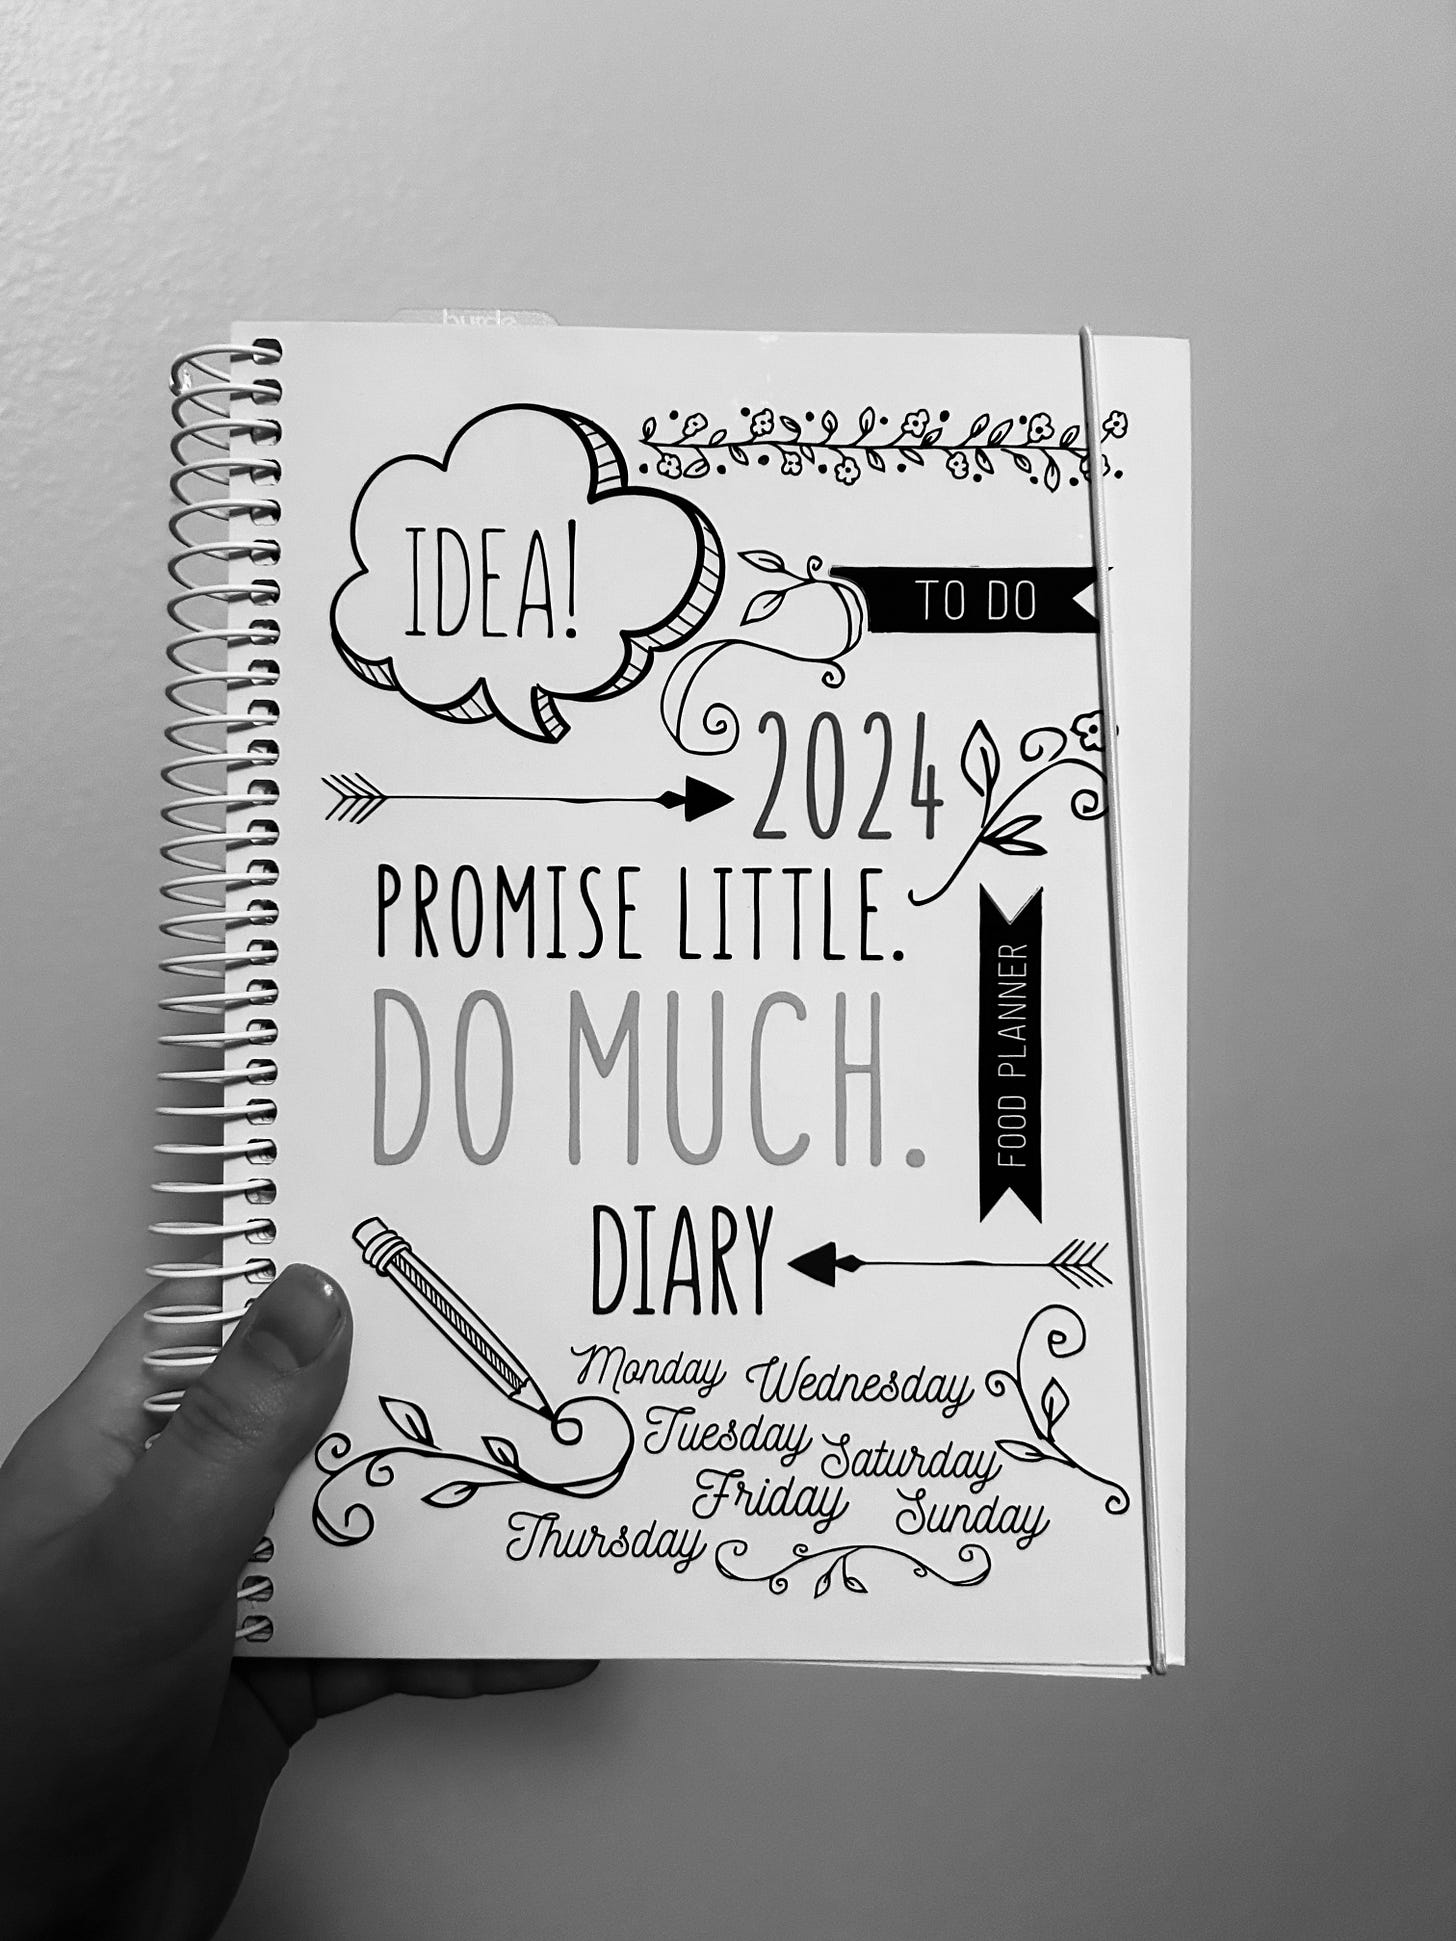 IDEA!
TO DO
2024
PROMISE LITTLE.
DO MUCH.
FOOD PLANNER
DIARY
Monday Wednesday
Tuesday Saturday
Friday Sunday
Thursday